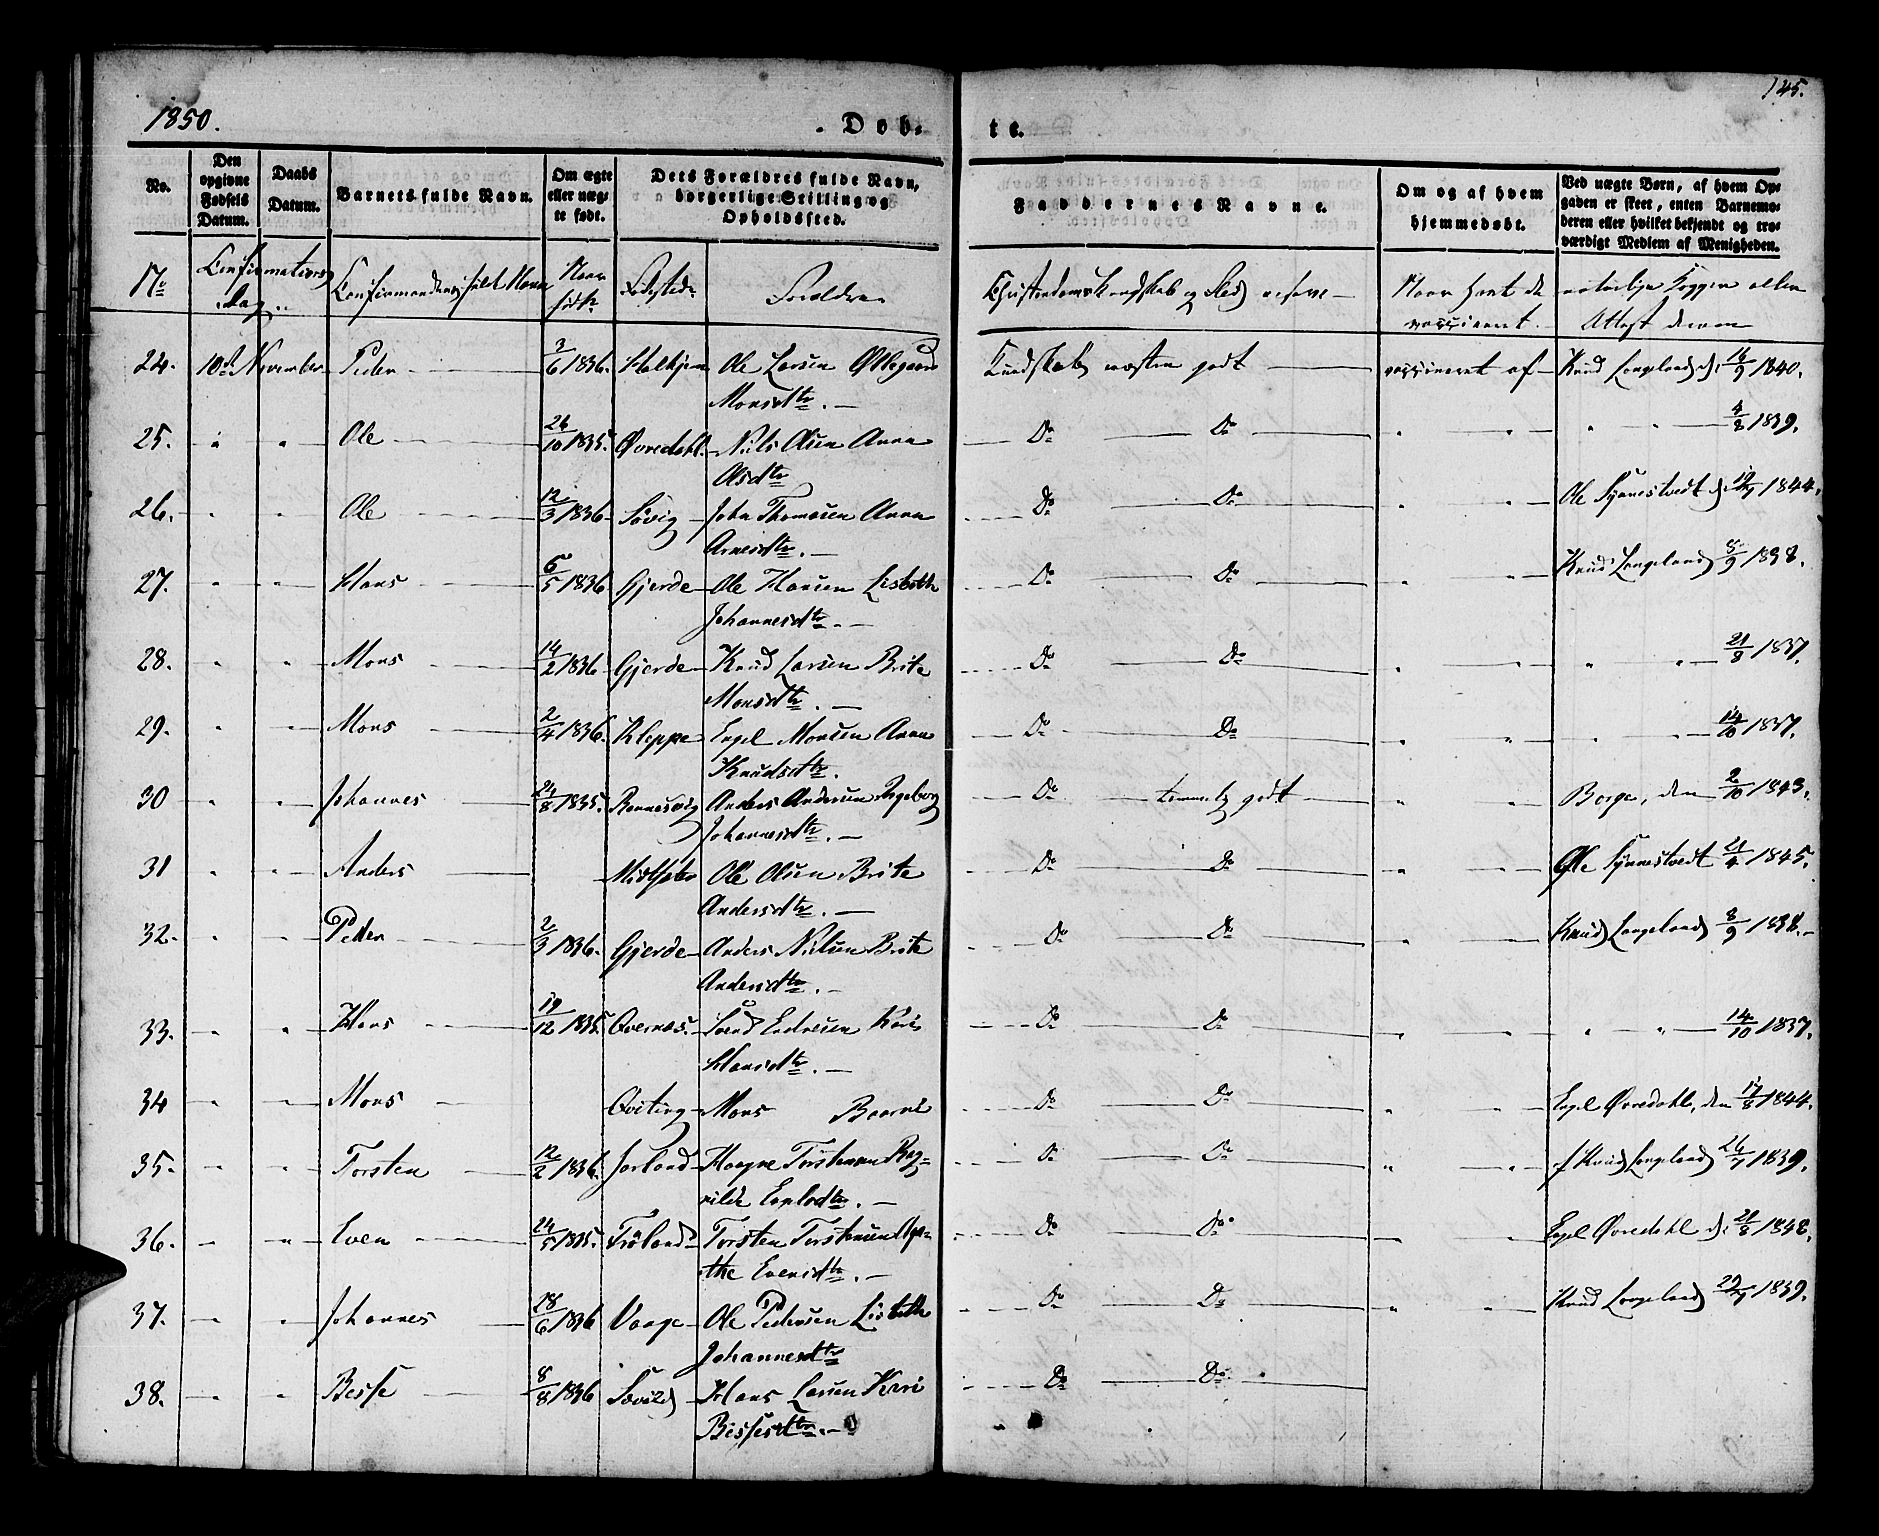 1850.
Døb-
te.
145.
No.
Den opgivne Fødsels Datum.
Daabs Datum.
Barnets fulde Navn.
Om ægte eller uægte født.
Dets Forældres fulde Navn, borgerlige Stilling og Opholdssted.
Faddernes Navne.
Om og af hvem hjemmedøbt.
Ved uægte Børn, af hvem Opgaven er skeet, enten Barnemoderen eller hvilket bekjendt og troværdigt Medlem af Menigheden.
No Confirmations Dag Confirmandens fulde Navn Naar født Fødested Forældre Christendomskundskab og Flid Naar havt de naturlige Kopper eller
vaccineret. Attest derom
24. 10de November Peder 3/6 1836. Halhjem Ole Larsen Øllegaard Kundskab næsten godt vaccineret af Knud Longeland d. 14/9 1840.
Monsdtr.
25. " " Ole 26/10 1835. Øvredahl. Niels Olsen Anna Do Do " " " " 4/8 1839.
Olsdtr
26. " " Ole 12/3 1836 Søvig John Thomasen Anna Do Do " " Ole Synnestvedt d. 1844.
Arnesdtr.
27. " " Hans 6/5 1836 Gjerde Ole Hansen Lisbeth Do Do " " Knud Longeland 8/9 1838.
Johannesdtr.
28. " " Mons 14/2 1836 Gjerde Knud Larsen Brite Do Do " " " " 21/8 1837.
Monsdtr.
29. " " Mons 2/4 1836. Kleppe Engel Monsen Anna Do Do " " " " 14/10 1837.
Knudsdtr.
30 " " Johannes 24/8 1835. Rennesvig Anders Andersen Ingeborg Do temmelig godt " " Borge, den 2/10 1843.
Johannesdtr.
31 " " Anders Ole Olsen Brite Do Do " " Ole Synnestvedt 21/4 1845.
Andersdtr.
32. " " Peder 2/3 1836. Gjerde Anders Nielsen Brite Do Do " " Knud Longeland 8/9 1838.
Andersdtr.
33. " " Hans 19/12 1835 Overnes. Svend Endresen Kari Do Do " " " " 14/10 1837.
Hansdtr.
34 " " Mons Mons Do Do " " Engel Øvredahl, den 17/8 1844.
35. " " Torsten 12/2 1836. Jorland Haagne Torstensen Rag- Do Do " " Knud Longeland 26/7 1839.
nilde Engelsdtr.
36. " " Even 24/5 1835. Frøland Torsten Torstensen Aga- Do Do " " Engel Øvredahl d. 21/8 1848.
the Evensdtr.
37. " " Johannes 18/6 1836 Vaage Ole Pedersen Lisbeth Do Do " " Knud Longeland 29/7 1839.
Johannesdtr
38. " " Besse 8/8 1836 Hans Larsen Kari Do Do
Bessesdtr.